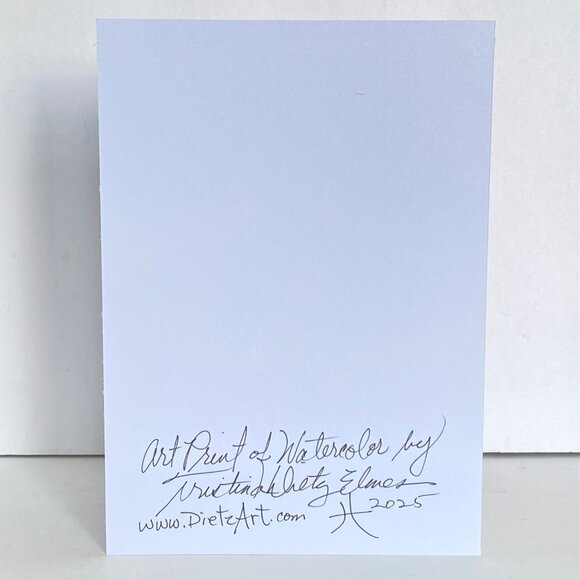 Art Print of Watercolor by
Kristina Dietz Elmes
www.DietzArt.com 2025